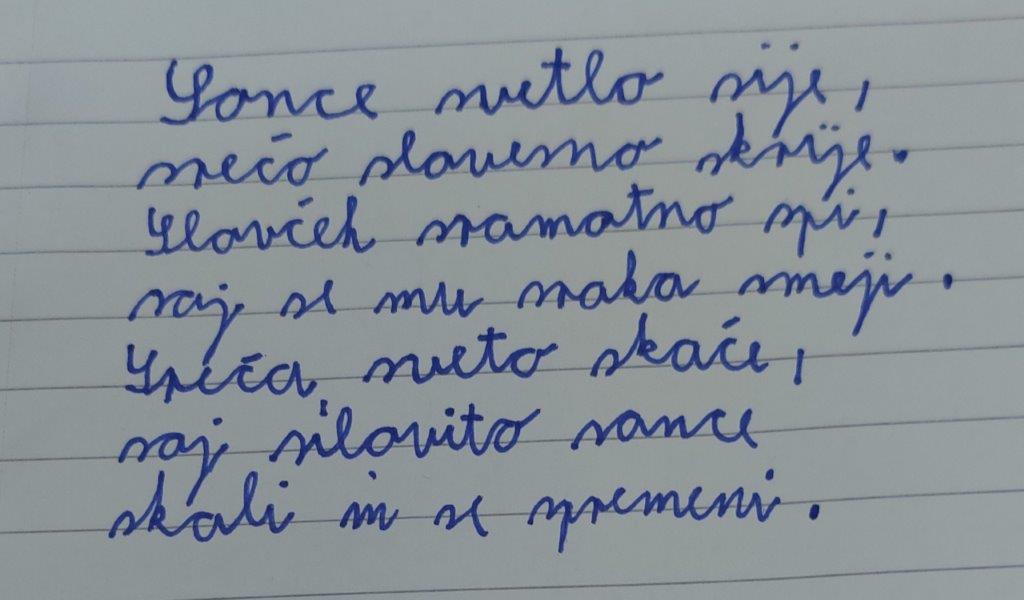 Sonce svetlo sije,
srečo slovesno skrije.
Slavček sramotno spi,
saj se mu sraka smeji.
Sreča sveto skače,
saj silovito sonce
skali in se spremeni.